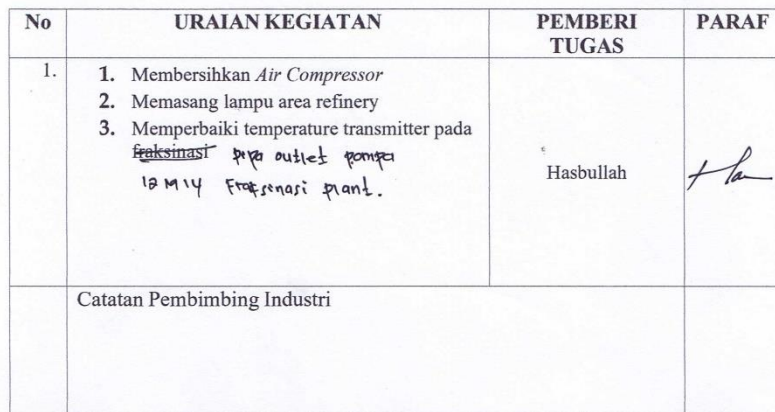 No URAIAN KEGIATAN PEMBERI TUGAS PARAF
1. 1. Membersihkan Air Compressor
2. Memasang lampu area refinery
3. Memperbaiki temperature transmitter pada
fraksinasi pipa outlet pompa
12 M 14 Fraksinasi plant.
Hasbullah
Catatan Pembimbing Industri